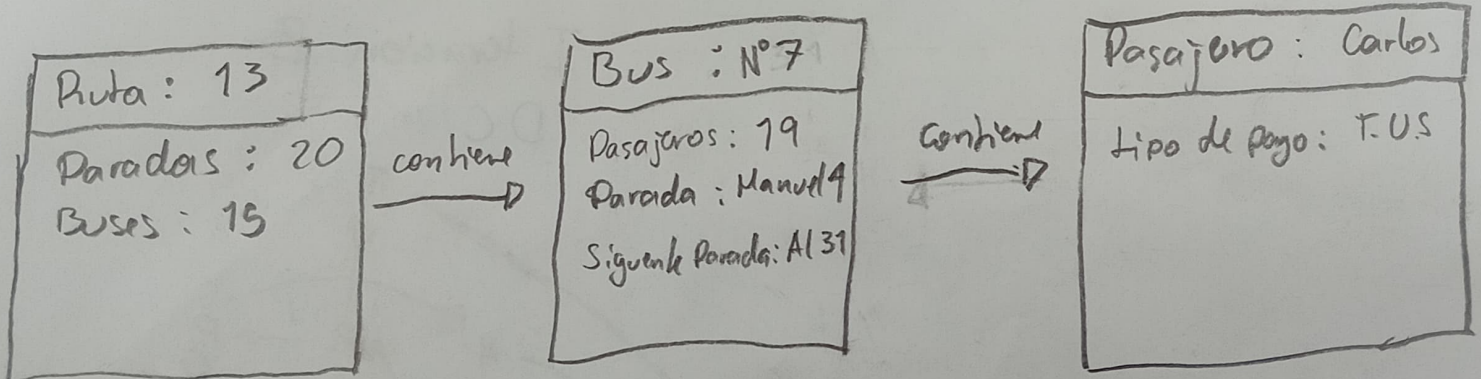 Ruta : 13
Paradas : 20
Buses : 15
contiene
Bus : Nº 7
Pasajeros : 19
Parada : Manuel 4
Siguente Parada: Al 31
contiene
Pasajero : Carlos
tipo de pago : T.U.S